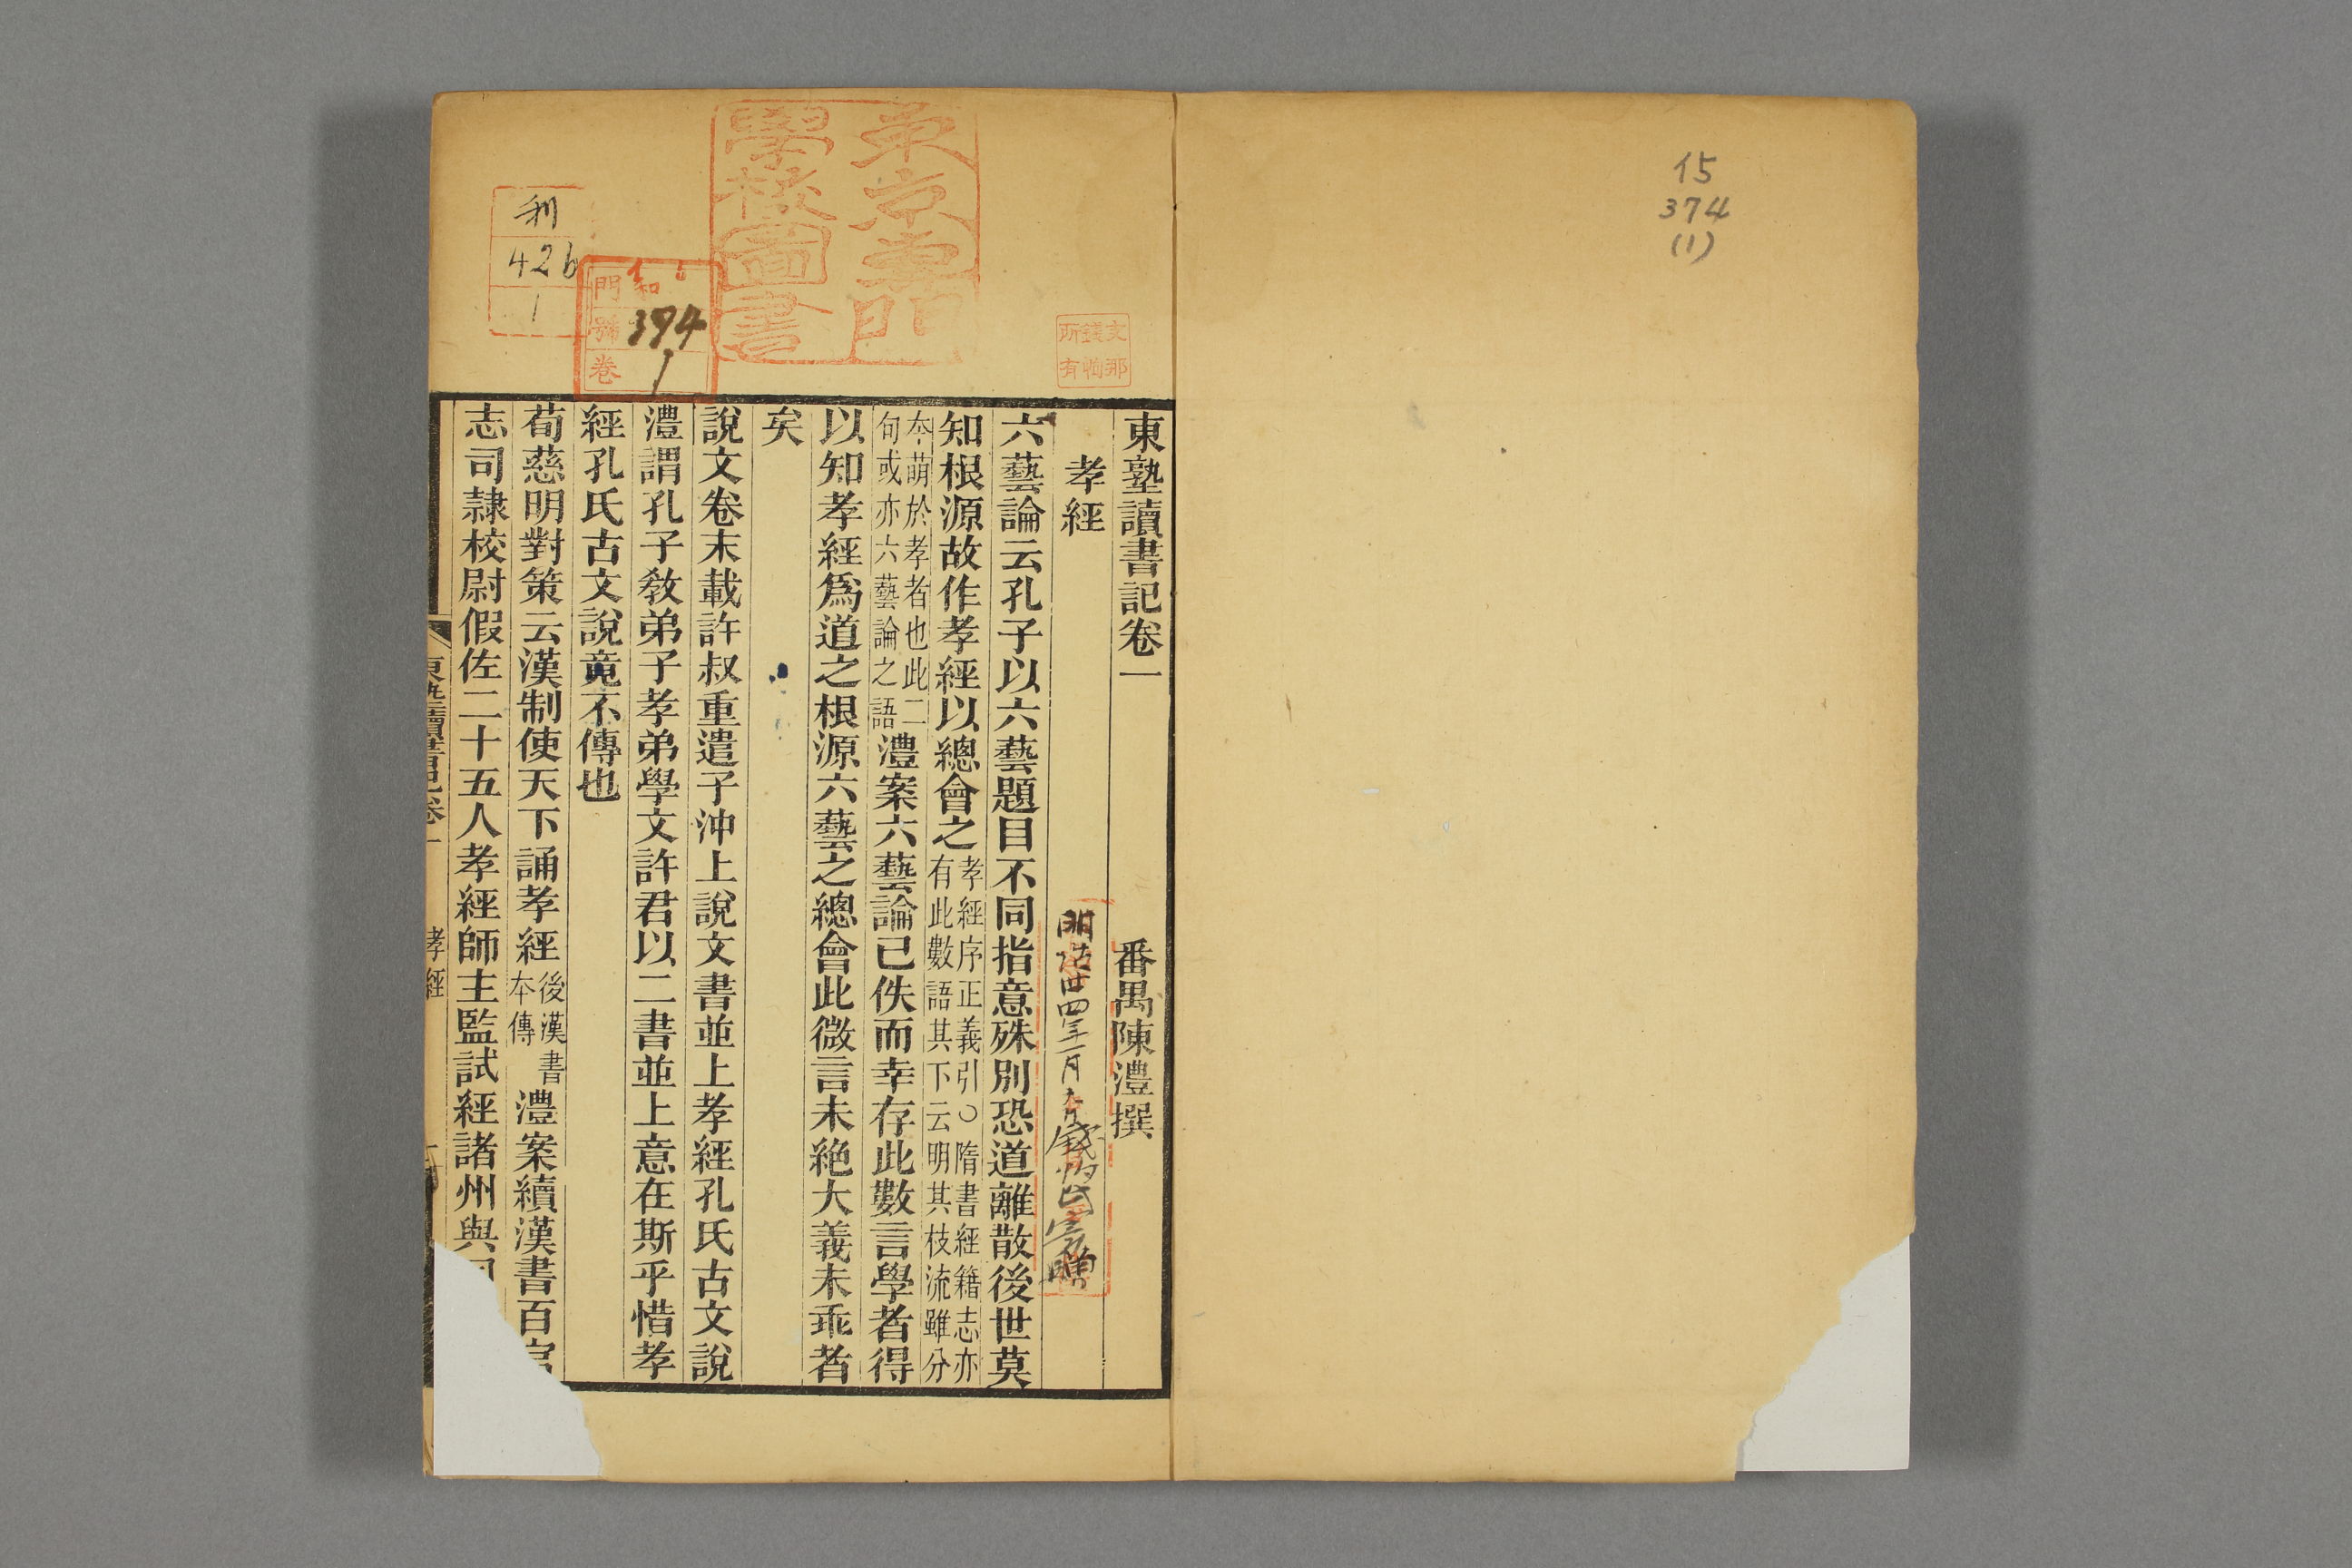 15
374
(1)
東塾讀書記卷一
番禺陳澧撰
孝經
六藝論云孔子以六藝題目不同指意殊別恐道離散後世莫
知根源故作孝經以總會之
孝經序正義引○隋書經籍志亦
有此數語其下云明其枝流雖分
本萌於孝者也此二
句或亦六藝論之語
澧案六藝論已佚而幸存此數言學者得
以知孝經爲道之根源六藝之總會此微言未絶大義未乖者
矣
說文卷末載許叔重遣子沖上說文書並上孝經孔氏古文說
澧謂孔子敎弟子孝弟學文許君以二書並上意在斯乎惜孝
經孔氏古文說竟不傳也
荀慈明對策云漢制使天下誦孝經
後漢書
本傳
澧案續漢書百官
志司隷校尉假佐二十五人孝經師主監試經諸州與
東塾讀書記卷一
孝經
東京專門
學校圖書
門
號 374
卷 1
426
1
所有